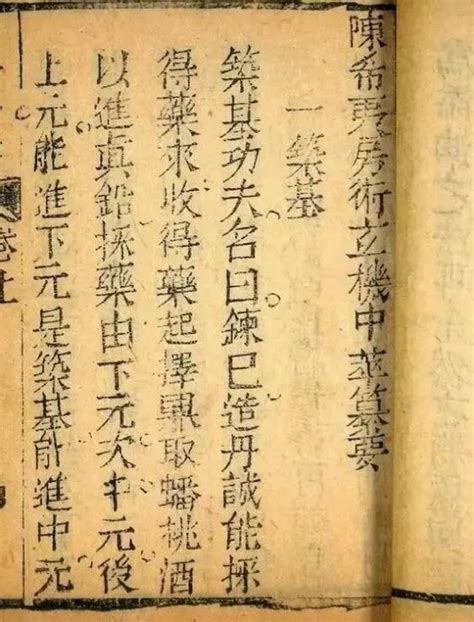 陳希夷房術玄機中萃纂要
一築基
築基功夫名曰鍊巳造丹誠能採
得藥來收得藥起擇鼎取蟠桃酒
以進真鉛採藥由下元次中元後
上元能進下元是築基能進中元